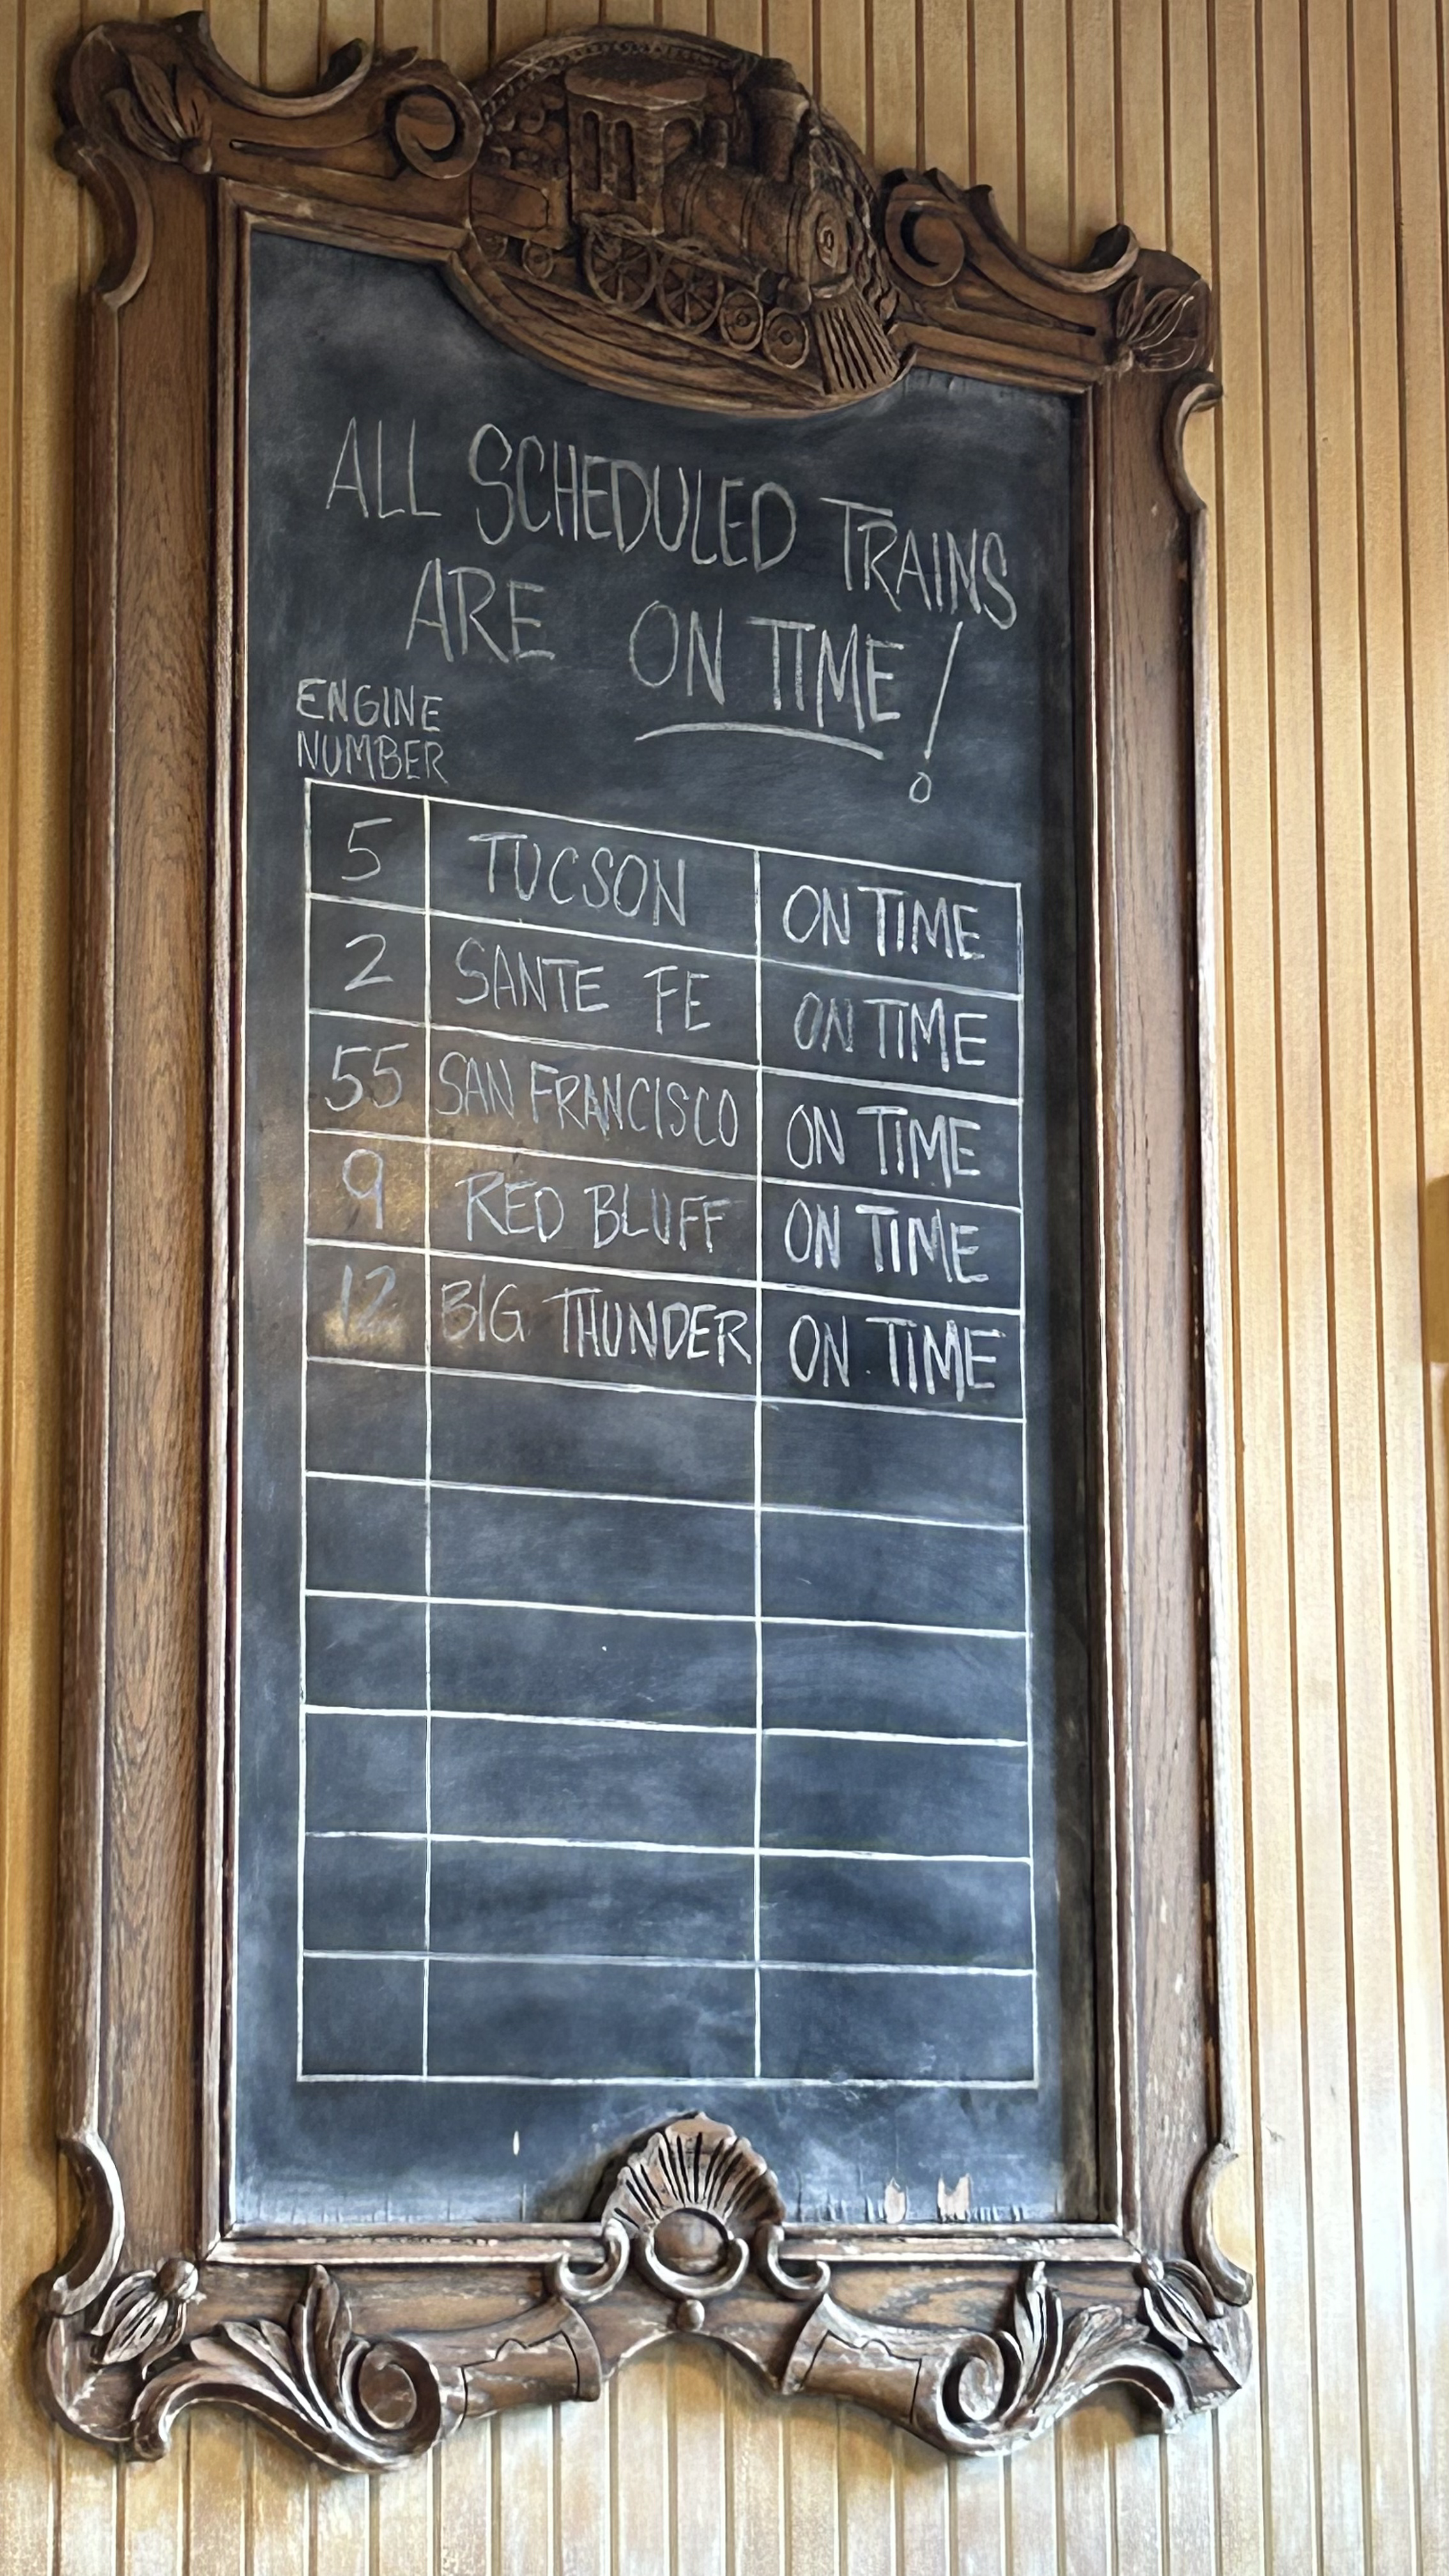 ALL SCHEDULED TRAINS
ARE ON TIME!
ENGINE
NUMBER
5 TUCSON ON TIME
2 SANTE FE ON TIME
55 SAN FRANCISCO ON TIME
9 RED BLUFF ON TIME
12 BIG THUNDER ON TIME